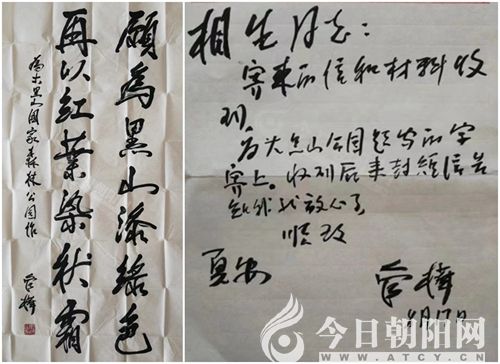 願為黑山添绿色
再以紅葉染秋霜
為大黑山国家森林公园作
管樺
相生同志：
寄来的信和材料收
到
为大黑山公园题写的字
寄上。收到后来封短信告
我放心了
顺致
夏安
管樺
月17日
今日朝阳网
WWW.ATCY.CN